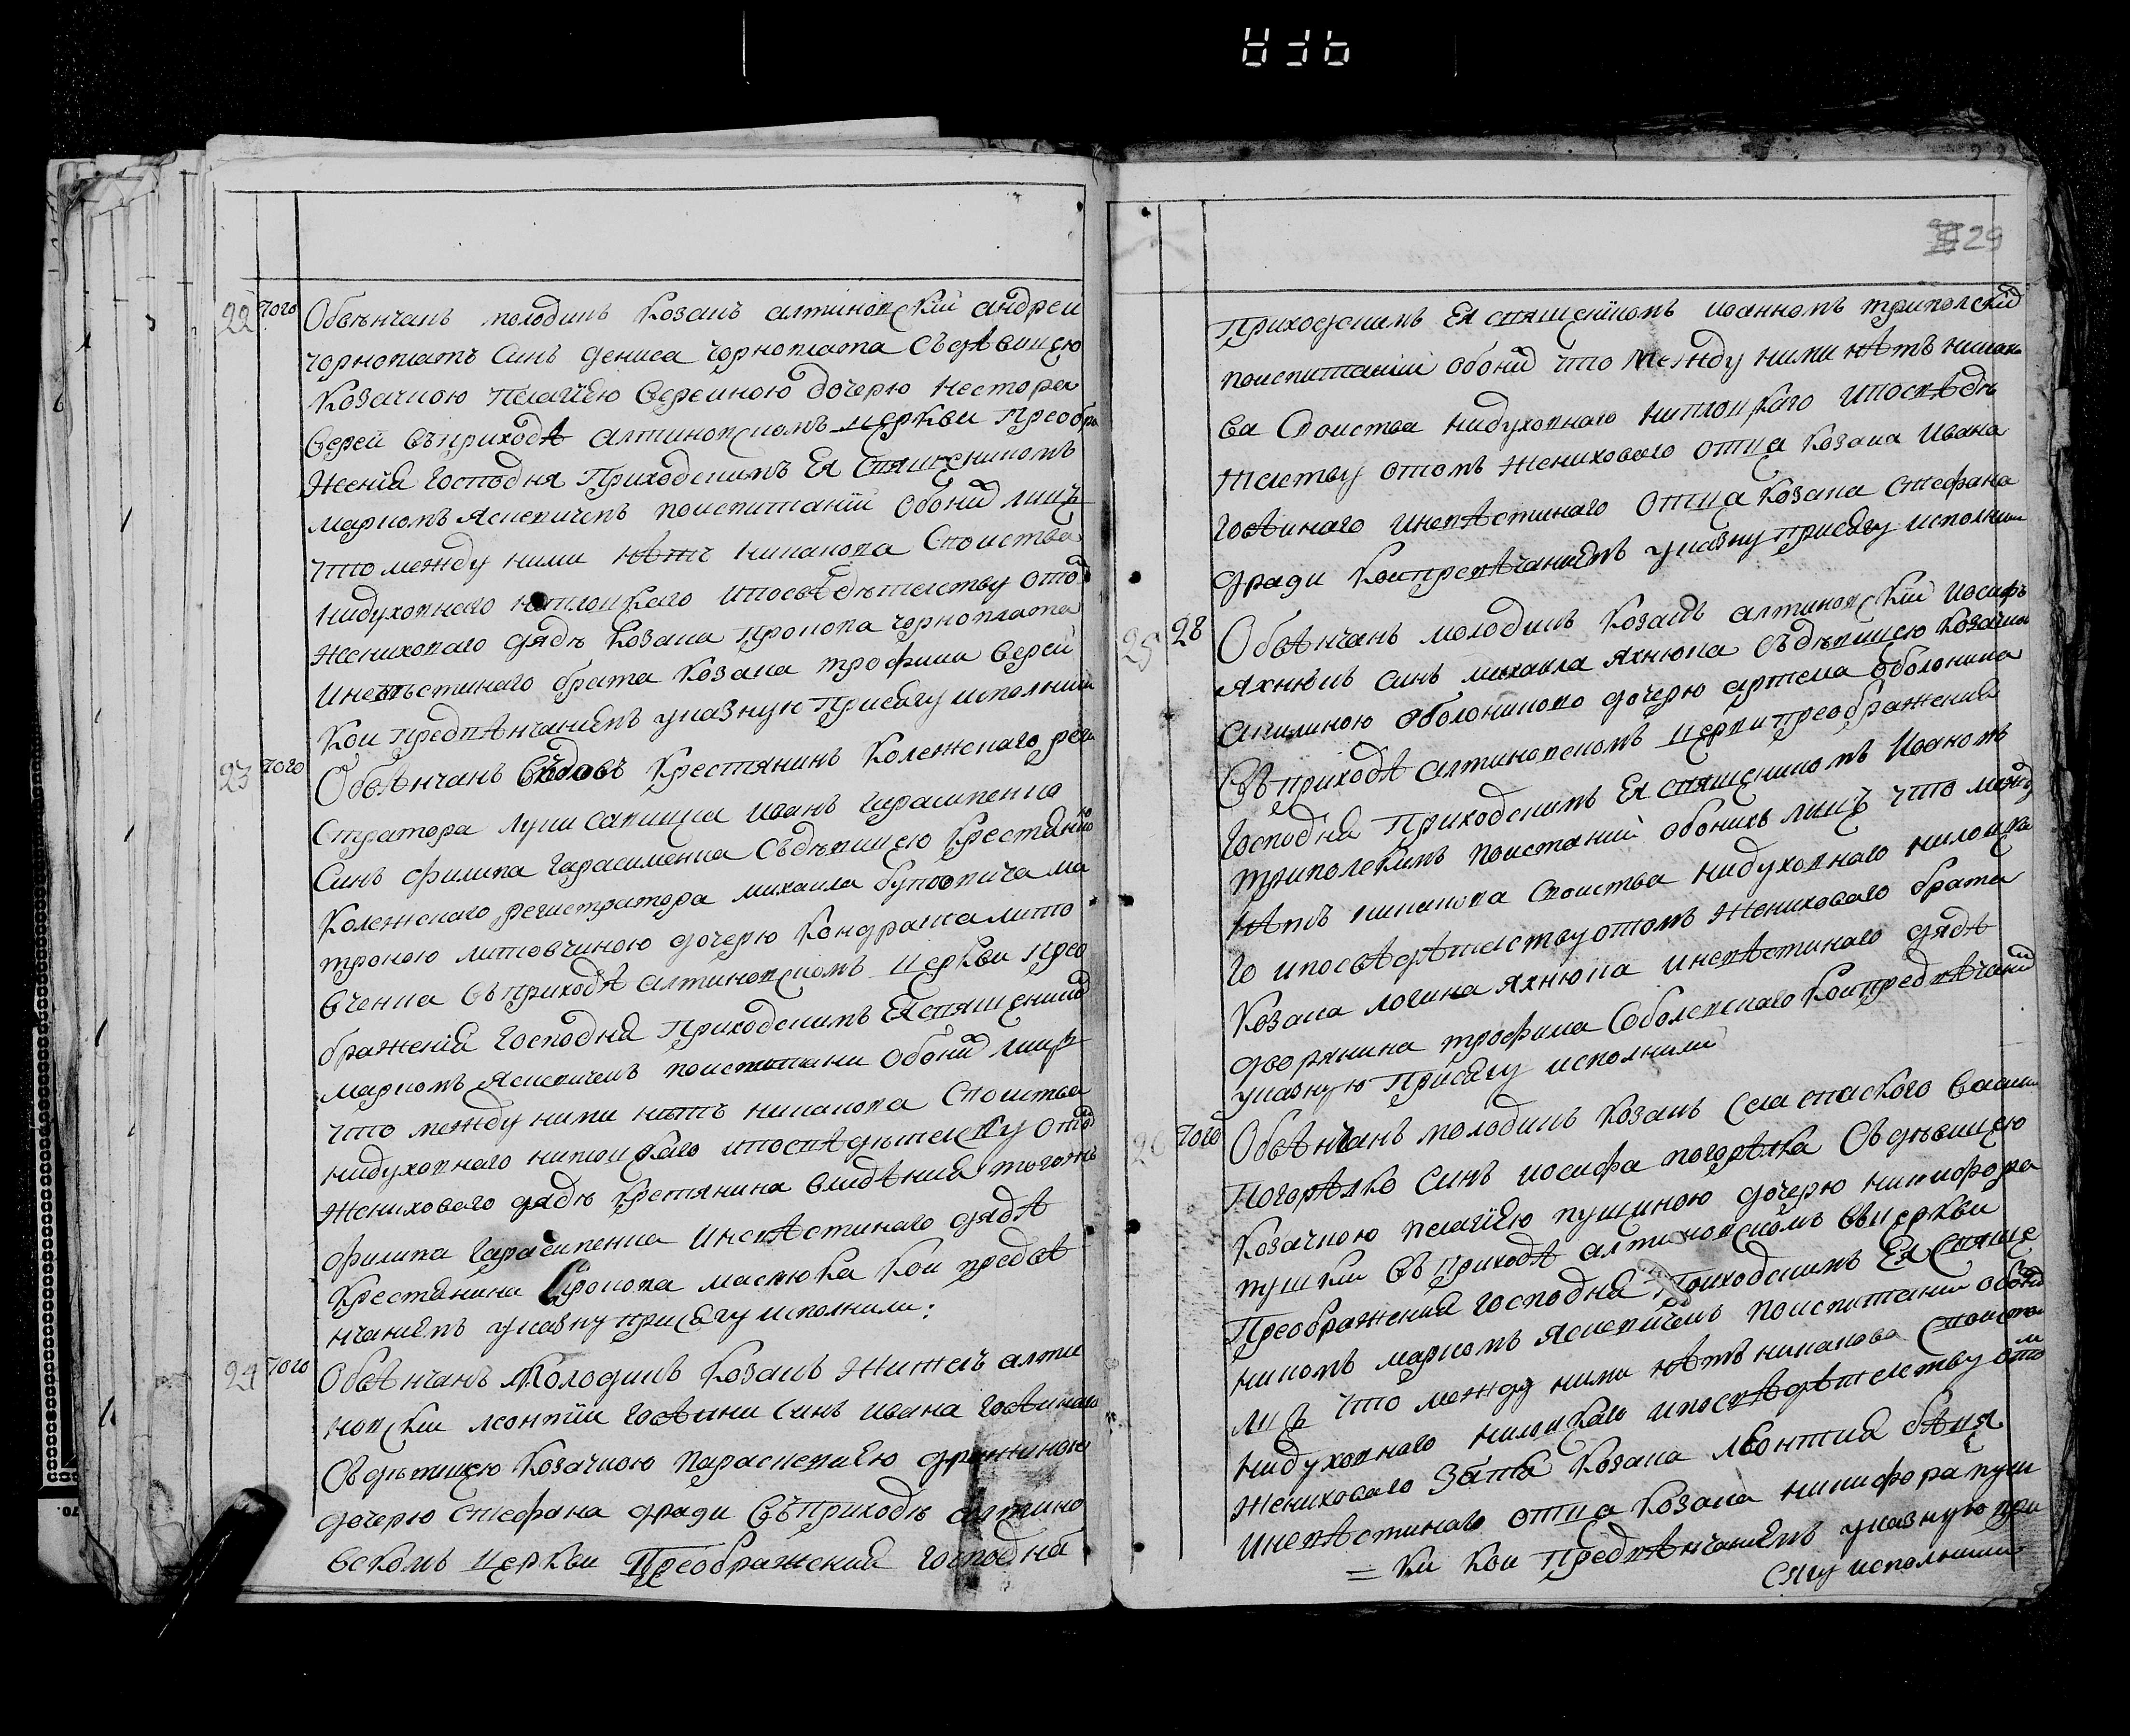 29
22 того Обвѣнчанъ молодикъ козакъ алтиновскій андрей
чорноплатъ синъ дениса чорноплата съдѣвицею
козачкою пелагіею верейною дочерю нестора
верей въприходѣ алтиновскомъ церкви преобра
женія господня приходскимъ Ея священикомъ
маркомъ Ясневичемъ поиспитаніи обоихъ лицъ
что между ними нѣтъ никакова своиства
нидуховнаго ниплоцкаго ипосвѣдѣтелству отомъ
жениховаго дядѣ козака прокопа чорноплата
иневѣстинаго брата козака трофима верей
кои предвѣнчаніемъ указную присягу исполнили
23 того Обвѣнчанъ вдовъ крестянинъ колежскаго реги
стратора луки савицка иванъ гарасименко
синъ филипа гарасименка съдѣвицею крестянкою
колежского регистратора михаила бутовича ма
троною литовчиною дочерю кондрата лито
вченка въприходѣ алтиновскомъ церкви прео
браженія господня приходскимъ Ея священикомъ
маркомъ Ясневичемъ поиспитани обоихъ лицъ
что между ними нѣтъ никакова своиства
нидуховнаго ниплоцкаго ипосвѣдѣтелству отомъ
жениховаго дядѣ крестянина владѣния тогожъ
филипа гарасименка иневѣстинаго дядѣ
крестянина прокопа маслюка кои предвѣ
нчаніемъ указну присягу исполнили:
24 того Обвѣнчанъ молодикъ козакъ житель алти
новскій леонтій говѣини синъ ивана говѣинаго
съдѣвицею козачкою параскевиею дражиною
дочерю стефана дради въприходѣ алтино
вскомъ церкви преображения господня
приходскимъ Ея священикомъ иоанномъ триполскимъ
поиспитаніи обоихъ что между ними нѣтъ никако
ва своиства нидуховнаго ниплоцкаго ипосвѣдѣ
телству отомъ жениховаго отца козака ивана
говѣинаго иневѣстинаго отца козака стефана
дради коипредвѣчаниемъ указну присягу исполнили
25 28 Обвѣнчанъ молодикъ козакъ алтиновскій иосифъ
яхнюкъ синъ михаила яхнюка съдѣвицею козачко
акилиною оболонкиною дочерю артема оболонка
въприходѣ алтиновскомъ церкви преображения
господня приходскимъ Ея священикомъ иваномъ
триполскимъ поиспитаній обоихъ лицъ что между
нѣтъ никакова своиства нидуховнаго ниплоцка
го ипосвѣдѣтелству отомъ жениховаго брата
козака логина яхнюка иневѣстинаго дядѣ
дворянина трофима соболевскаго коипредвѣчаниемъ
указную присягу исполнили
26 того Обвѣнчанъ молодикъ козакъ села спаского
погорѣлко синъ иосифа погорѣлка съдѣвицею
козачкою пелагіею пушкиною дочерю никифора
пушки въприходѣ алтиновскомъ вцеркви
преображения господня приходскимъ Ея свяще
никомъ маркомъ Ясневичемъ поиспитани обоихъ
лицъ что между ними нѣтъ никакова своиства
нидуховнаго ниплоцкаго ипосвѣдѣтелству отомъ
жениховаго затя козака леонтия
иневѣстинаго отца козака никифора пуш
= ки кои предвѣнчаниемъ указную при
сягу исполнили